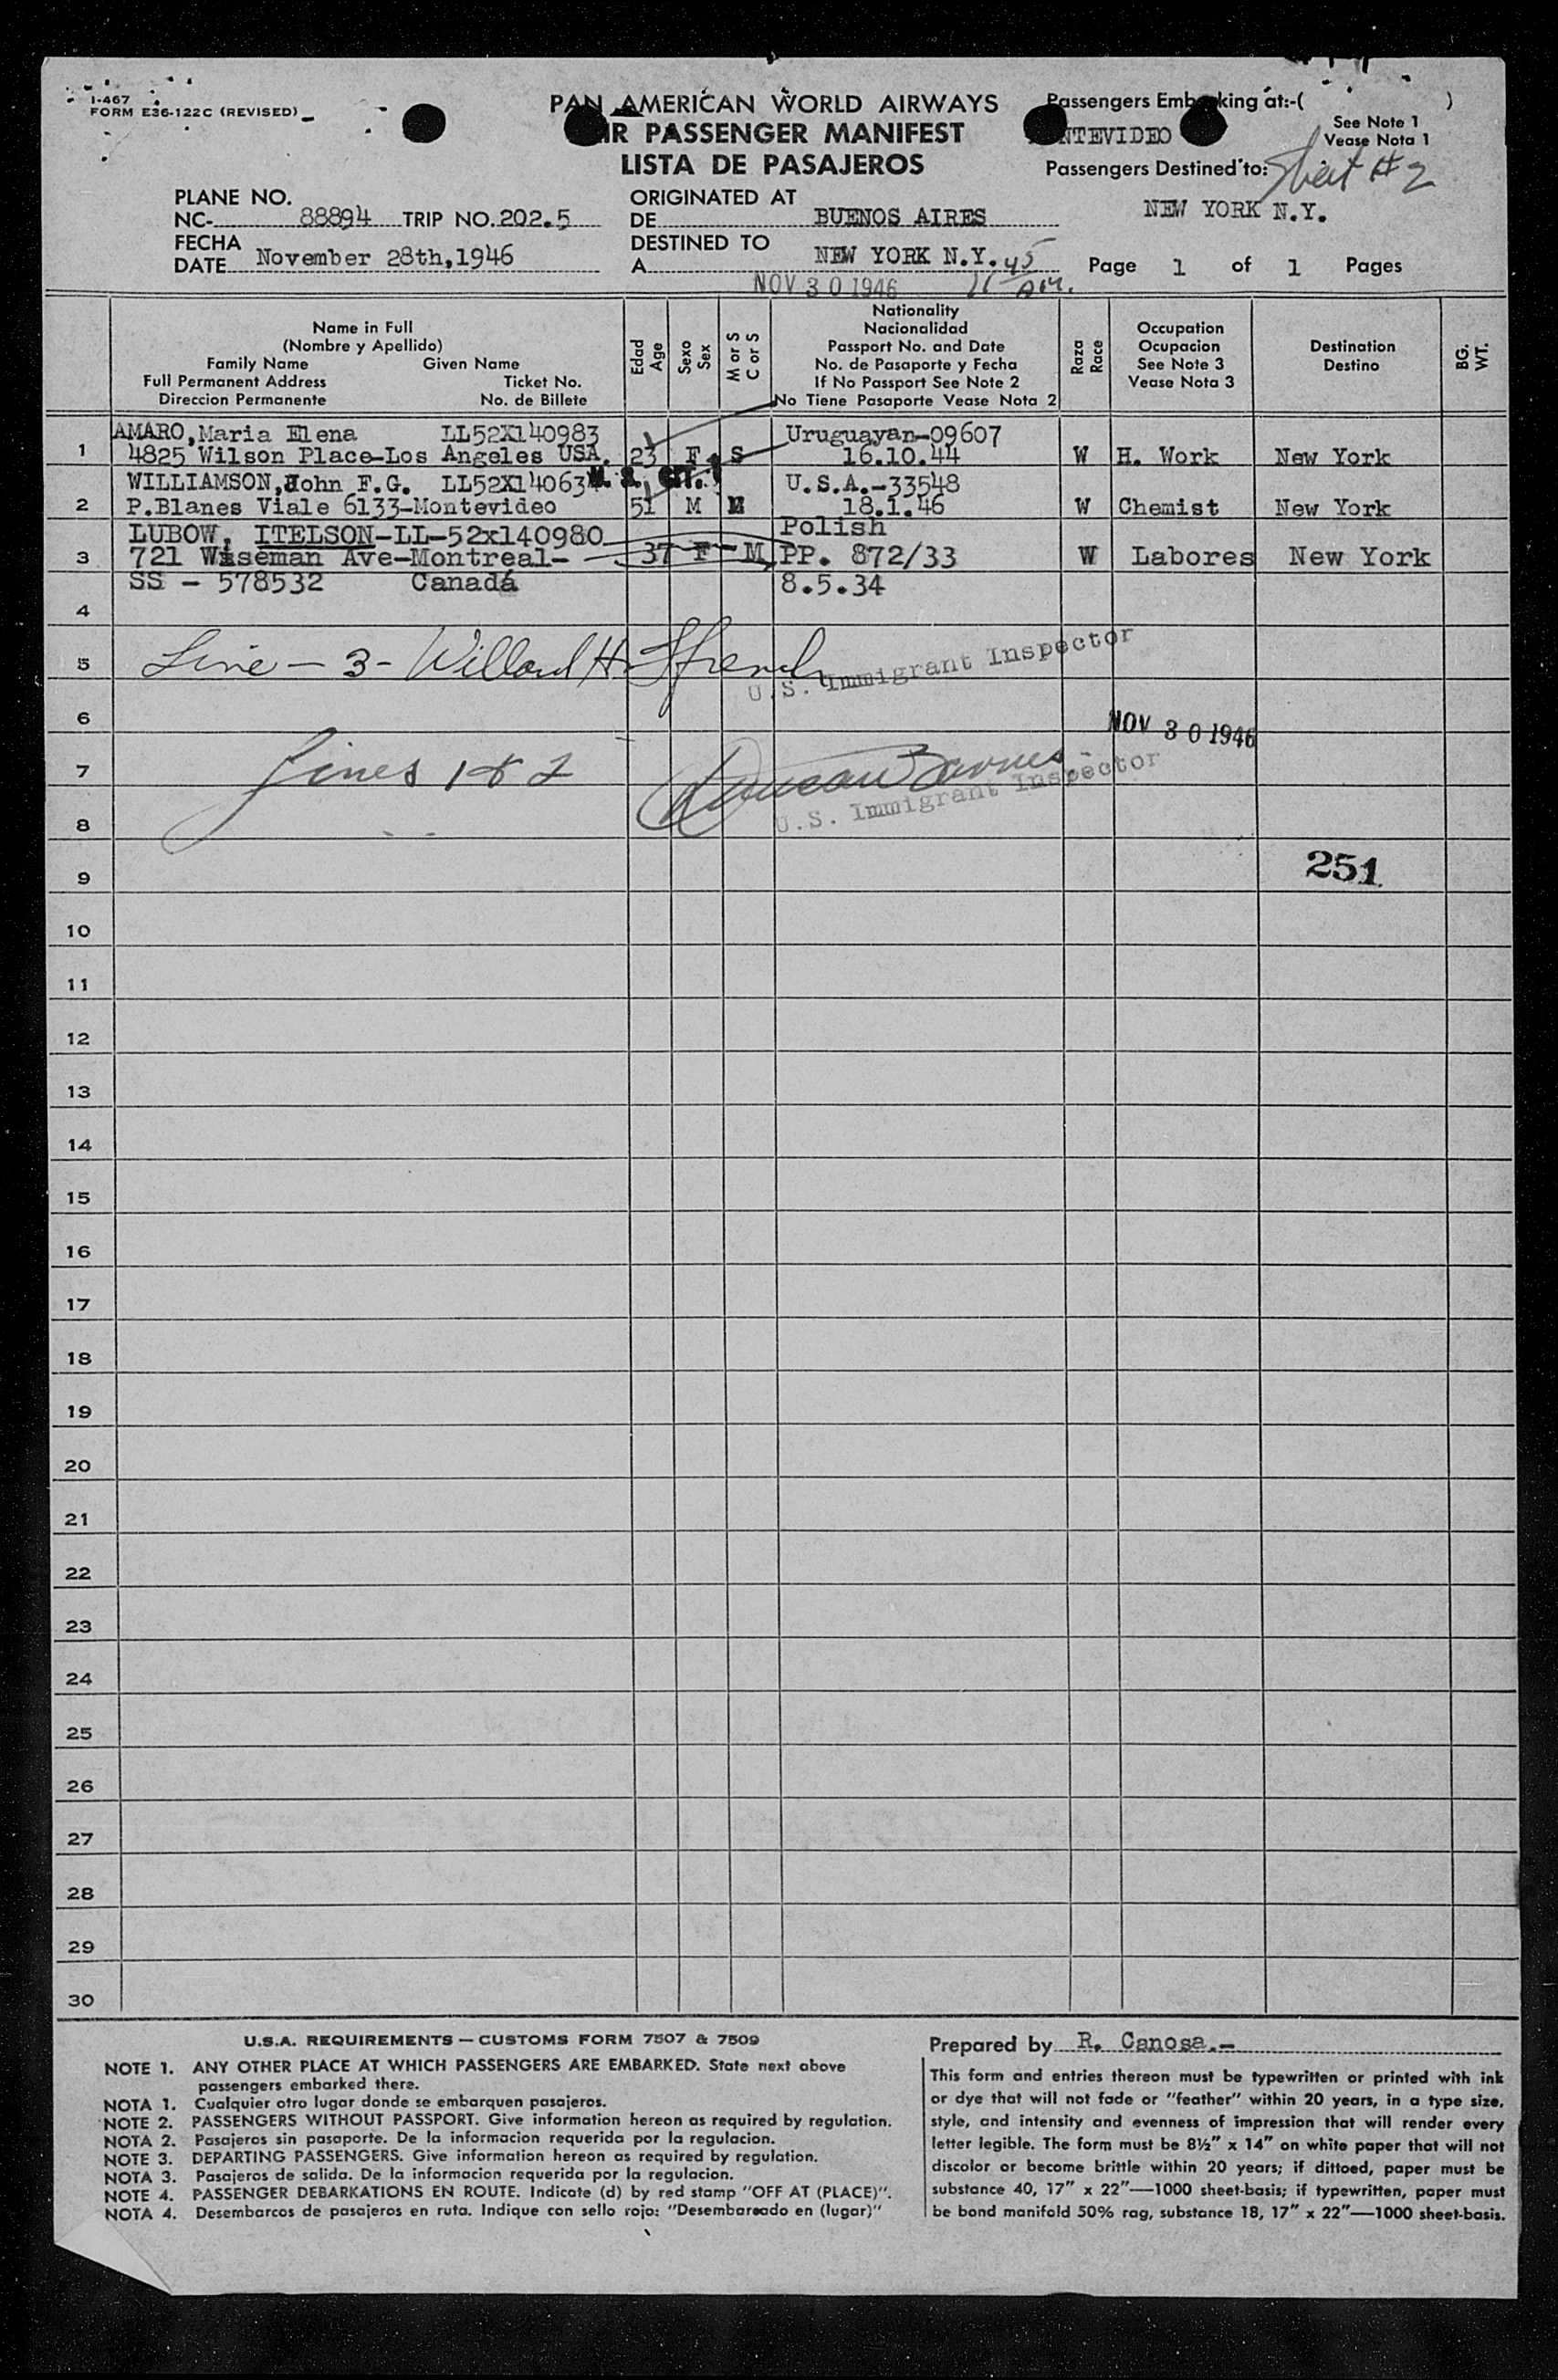 I-467
FORM E36-122C (REVISED)
PAN AMERICAN WORLD AIRWAYS
AIR PASSENGER MANIFEST
LISTA DE PASAJEROS
Passengers Embarking at:-( )
See Note 1
Vease Nota 1
MONTEVIDEO
Passengers Destined to:
Sheet #2
NEW YORK N.Y.
PLANE NO.
NC- 88894 TRIP NO. 202.5
FECHA
DATE November 28th,1946
ORIGINATED AT
DE BUENOS AIRES
DESTINED TO
A NEW YORK N.Y.
NOV 30 1946 11 45 AM.
Page 1 of 1 Pages
Name in Full
(Nombre y Apellido)
Family Name Given Name
Full Permanent Address Ticket No.
Direccion Permanente No. de Billete
Edad
Age
Sexo
Sex
M or S
C or S
Nationality
Nacionalidad
Passport No. and Date
No. de Pasaporte y Fecha
If No Passport See Note 2
No Tiene Pasaporte Vease Nota 2
Raza
Race
Occupation
Ocupacion
See Note 3
Vease Nota 3
Destination
Destino
BG.
WT.
AMARO,Maria Elena LL52X140983 Uruguayan-09607
1 4825 Wilson Place-Los Angeles USA. 23 F S 16.10.44 W H. Work New York
WILLIAMSON,John F.G. LL52X14063 U.S. CIT. U.S.A.-33548
2 P.Blanes Viale 6133-Montevideo 51 M M 18.1.46 W Chemist New York
LUBOW, ITELSON-LL-52x140980 Polish
3 721 Wiseman Ave-Montreal- 37 F M PP. 872/33 W Labores New York
SS - 578532 Canadá 8.5.34
4
5 Line - 3 - Willard H. Ffrench
U.S. Immigrant Inspector
6
NOV 30 1946
7 Lines 1 & 2 Duncan Barnes
U.S. Immigrant Inspector
8
251
9
10
11
12
13
14
15
16
17
18
19
20
21
22
23
24
25
26
27
28
29
30
U.S.A. REQUIREMENTS — CUSTOMS FORM 7507 & 7509
NOTE 1. ANY OTHER PLACE AT WHICH PASSENGERS ARE EMBARKED. State next above
passengers embarked there.
NOTA 1. Cualquier otro lugar donde se embarquen pasajeros.
NOTE 2. PASSENGERS WITHOUT PASSPORT. Give information hereon as required by regulation.
NOTA 2. Pasajeros sin pasaporte. De la informacion requerida por la regulacion.
NOTE 3. DEPARTING PASSENGERS. Give information hereon as required by regulation.
NOTA 3. Pasajeros de salida. De la informacion requerida por la regulacion.
NOTE 4. PASSENGER DEBARKATIONS EN ROUTE. Indicate (d) by red stamp "OFF AT (PLACE)".
NOTA 4. Desembarcos de pasajeros en ruta. Indique con sello rojo: "Desembarcado en (lugar)"
Prepared by R. Canosa.-
This form and entries thereon must be typewritten or printed with ink
or dye that will not fade or "feather" within 20 years, in a type size,
style, and intensity and evenness of impression that will render every
letter legible. The form must be 8½" x 14" on white paper that will not
discolor or become brittle within 20 years; if dittoed, paper must be
substance 40, 17" x 22"—1000 sheet-basis; if typewritten, paper must
be bond manifold 50% rag, substance 18, 17" x 22"—1000 sheet-basis.